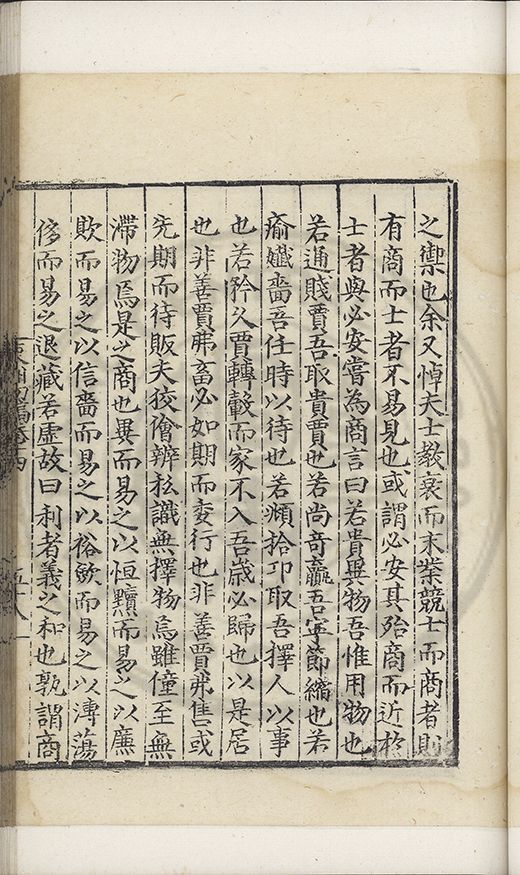 之禦也余又悼夫士敎衰而末業競士而商者則
有商而士者不易見也或謂必安其殆商而近於
士者與必安嘗為商言曰若貴異物吾惟用物也
若通賤賈吾取貴賈也若尚奇贏吾寧節縮也若
瘉孅嗇吾任時以待也若頫拾卬取吾擇人以事
也若矜久賈轉轂而家不入吾歲必歸也以是居
也非善賈弗畜必如期而委行也非善賈弗售或
先期而待販夫狡儈辨秐識無擇物焉雖僮至無
滯物焉是之商也異而易之以恒黷而易之以廉
欺而易之以信嗇而易之以裕歛而易之以溥蕩
侈而易之退藏若虛故曰利者義之和也孰謂商